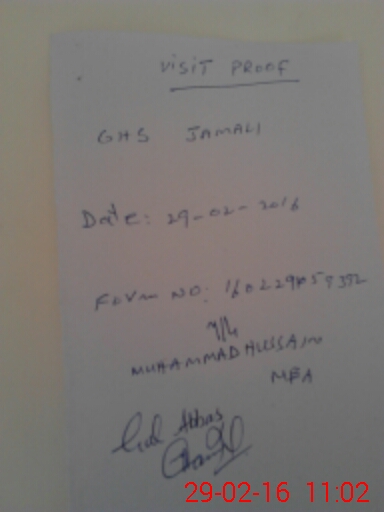 VISIT PROOF
GHS JAMALI
Date: 29-02-2016
FORM NO:
MUHAMMAD HUSSAIN
MEA
Gul Abbas
29-02-16 11:02